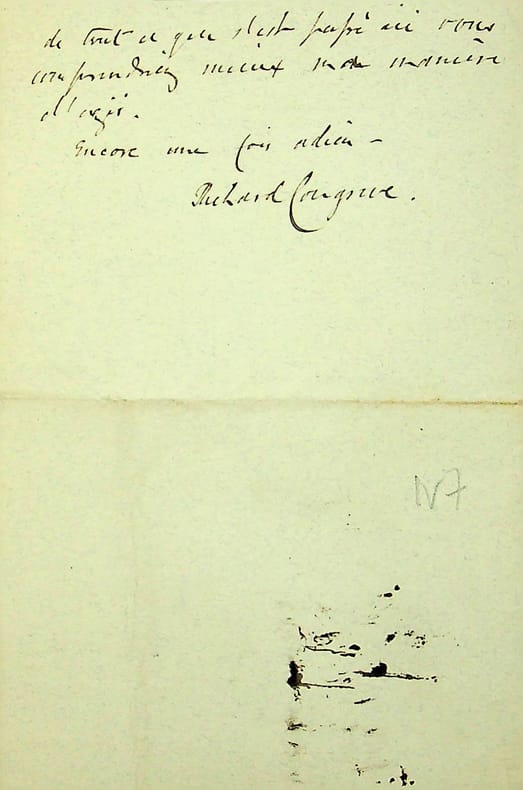 de tout ce que s'est passé ici vous
comprendriez mieux ma manière
d'agir.
Encore une fois adieu —
Richard Congreve.
N7